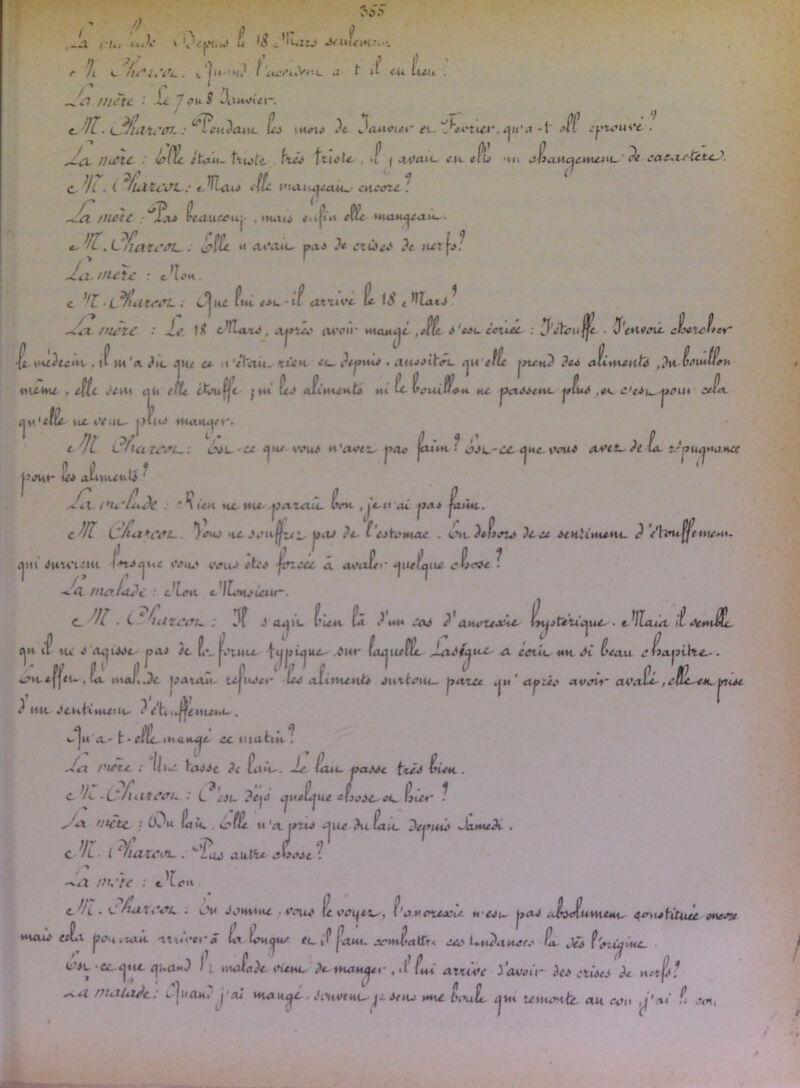 355
La malade : Depuis le 18 Mars seulement.
M. Charcot : Quand l'accident a-t-il eu lieu ?
La mère : Le 7 ou 8 Janvier.
M. Charcot : Pendant les mois de Janvier et Février, qu'a-t-elle éprouvé ?
La mère : Elle était triste, très triste, il y avait en elle un changement de caractère.
M. Charcot : Mais elle mangeait encore ?
La mère : Pas beaucoup, mais enfin elle mangeait.
M. Charcot : Elle n'avait pas de crises de nerfs ?
La mère : Non.
M. Charcot : Que lui est-il arrivé le 18 Mars ?
La mère : Le 18 Mars, après avoir mangé, elle s'est écriée : J'étouffe. J'envoie chercher
le médecin, il m'a dit que ce n'était rien et depuis, aussitôt qu'elle prend des aliments, du bouillon
même, elle sent qu'elle étouffe ; ni les aliments ni le bouillon ne passent plus, et c'est pour cela
qu'elle ne veut plus manger.
M. Charcot : Est-ce que vous n'avez pas faim ? Est-ce que vous avez de la répugnance
pour les aliments ?
La malade : Rien ne me paraît bon, je n'ai pas faim.
M. Charcot : Vous ne souffrez pas de l'estomac. En dehors de ce sentiment d'étouffement
qui survient lorsque vous êtes forcée à avaler quelque chose ?
La malade : Non Monsieur.
M. Charcot : Il s'agit bien là d'un cas d'anorexie hystérique. Mais il semble
qu'il ne s'agisse pas de la forme typique sur laquelle Lasègue a écrit un si beau chapitre.
En effet, la malade paraît refuser les aliments surtout parce qu'après avoir avalé, elle est prise
d'un sentiment d'étouffement.
Qu'a-t-elle mangé ce matin ?
La mère : Une tasse de lait. Le lait passe très bien.
M. Charcot : C'est déjà quelque chose et hier ?
La mère : Du lait. Elle n'a pris que du lait depuis Samedi.
M. Charcot : Pas autre chose ?
La mère : Non
M. Charcot : En somme, vous le voyez, l'anorexie n'est pas absolument constituée encore
mais cela pourrait arriver à la longue et il faut combattre ces tendances-là dès l'origine.
Est-ce que quand la malade vient de manger, il lui arrive d'avoir des crises de nerfs ?
La malade : Quand j'ai mangé, souvent je sens une boule qui remonte au cou, j'ai le cou